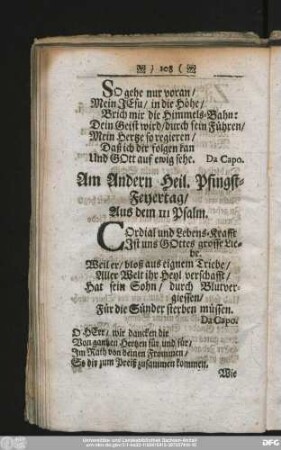 ) 108 (
SO gehe nur voran/
Mein JEsu/ in die Höhe/
Brich mir die Himmels-Bahn:
Dein Geist wird/ durch sein Führen/
Mein Hertze so regieren/
Daß ich dir folgen kan
Und GOtt auf ewig sehe. Da Capo.
Am Andern Heil. Pfingst-
Feyertag/
Aus dem III Psalm.
COrdial und Lebens-Krafft
Ist uns GOttes grosse Lie-
be.
Weil er/ blos aus eignem Triebe/
Aller Welt ihr Heyl verschafft/
Hat sein Sohn/ durch Blutver-
giessen/
Für die Sünder sterben müssen.
Da Capo.
O HErr/ wir dancken dir
Von gantzen Hertzen für und für/
Im Rath von deinen Frommen/
So dir zum Preiß zusammen kommen.
Wie
Universitäts- und Landesbibliothek Sachsen-Anhalt
DFG